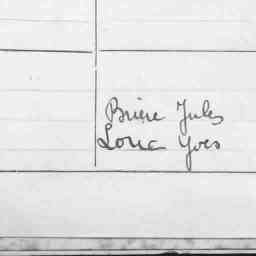 Brière Jules
Loric Yves